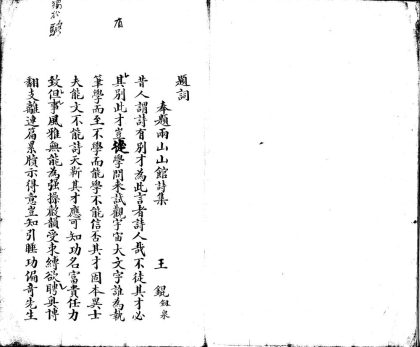 題詞
奉題兩山山館詩集
王鯤 旭泉
昔人謂詩有別才為此言者詩人哉不徒其才必
其別此才豈從學問來試觀宇宙大文字誰為執
筆學而至不學而能學不能信否其才固本異士
夫能文不能詩天靳其才應可知功名富貴任力
致但事風雅無能為強操嚴韻受束縛欲騁奧博
翻支離連篇累牘示得意豈知引睡功偏奇先生